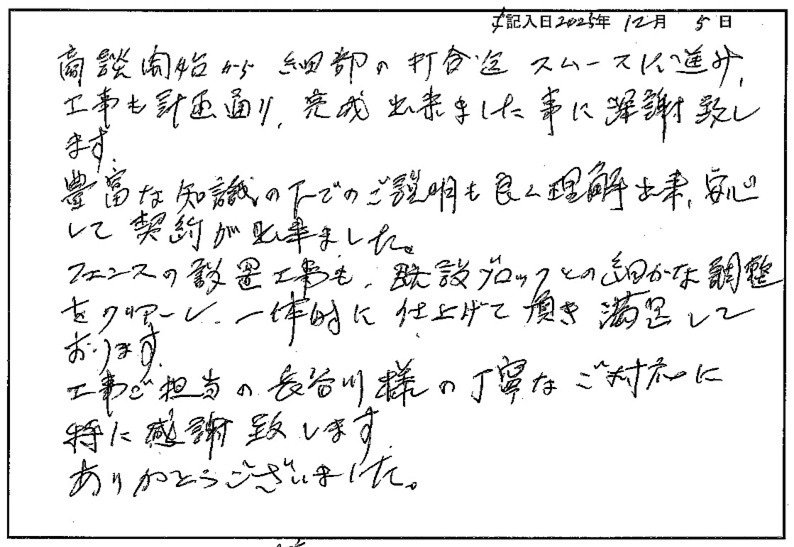 記入日2025年 12月 5日
商談開始から 細部の打合迄 スムースに進み、
工事も計画通り、完成出来ました事に深謝致し
ます。
豊富な知識の下でのご説明も良く理解出来、安心
して契約が出来ました。
フェンスの設置工事も、既設ブロックとの細かな調整
をクリアーし、一体的に仕上げて頂き満足して
おります。
工事ご担当の長谷川様の丁寧なご対応に
特に感謝致します。
ありがとうございました。